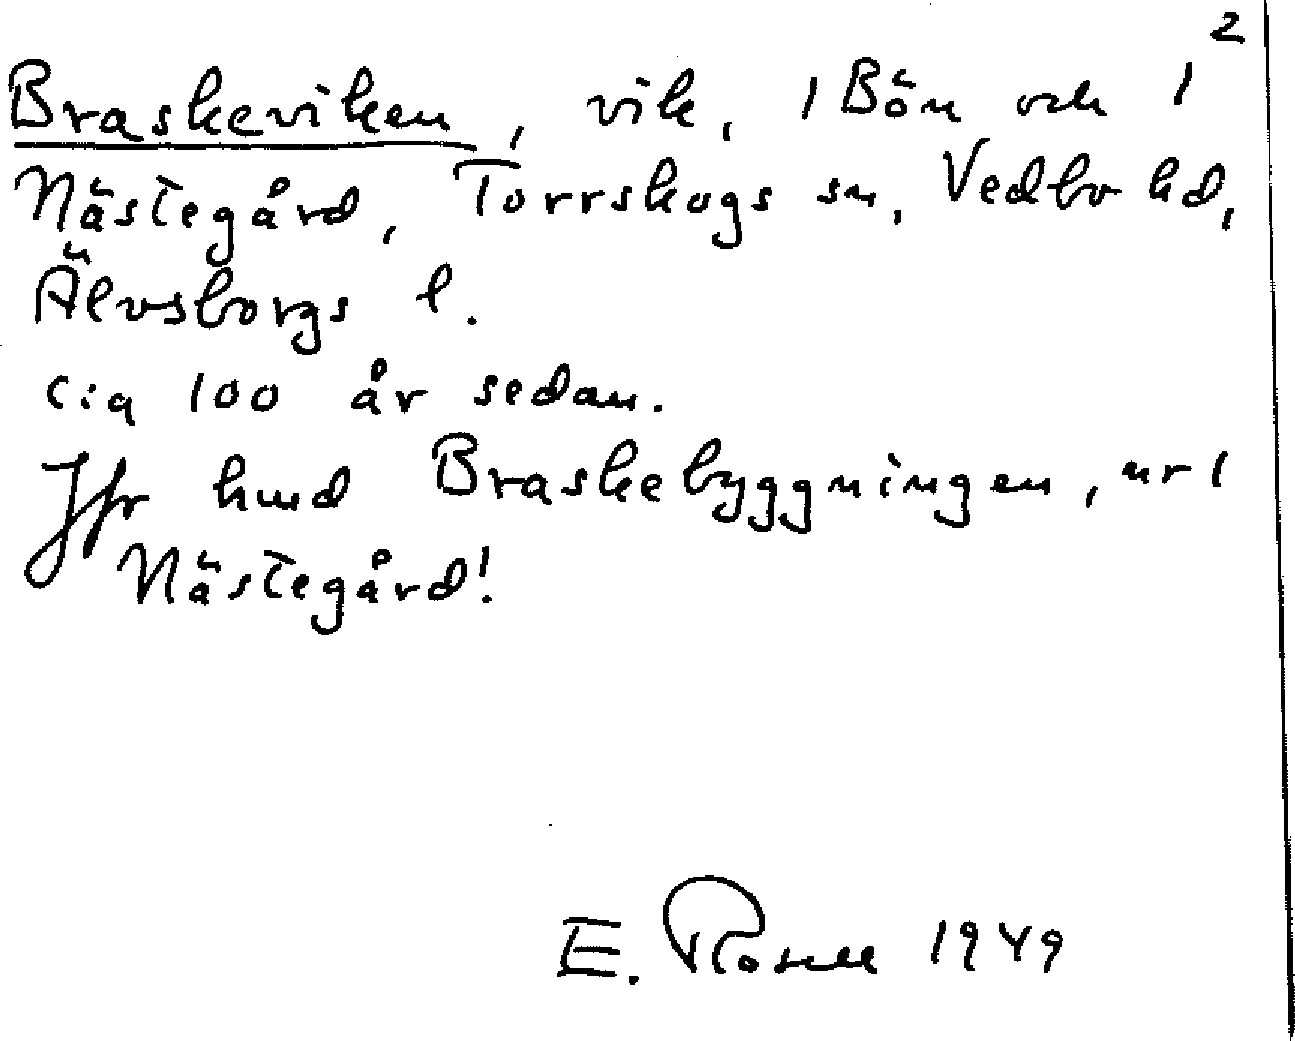 2
Braskeviken, vik, 1 Bön och 1
Nästegård, Torrskogs sn, Vedbo hd,
Älvsborgs l.
c:a 100 år sedan.
Jfr hmd Braskebyggningen, nr 1
Nästegård!
E. Rosell 1949